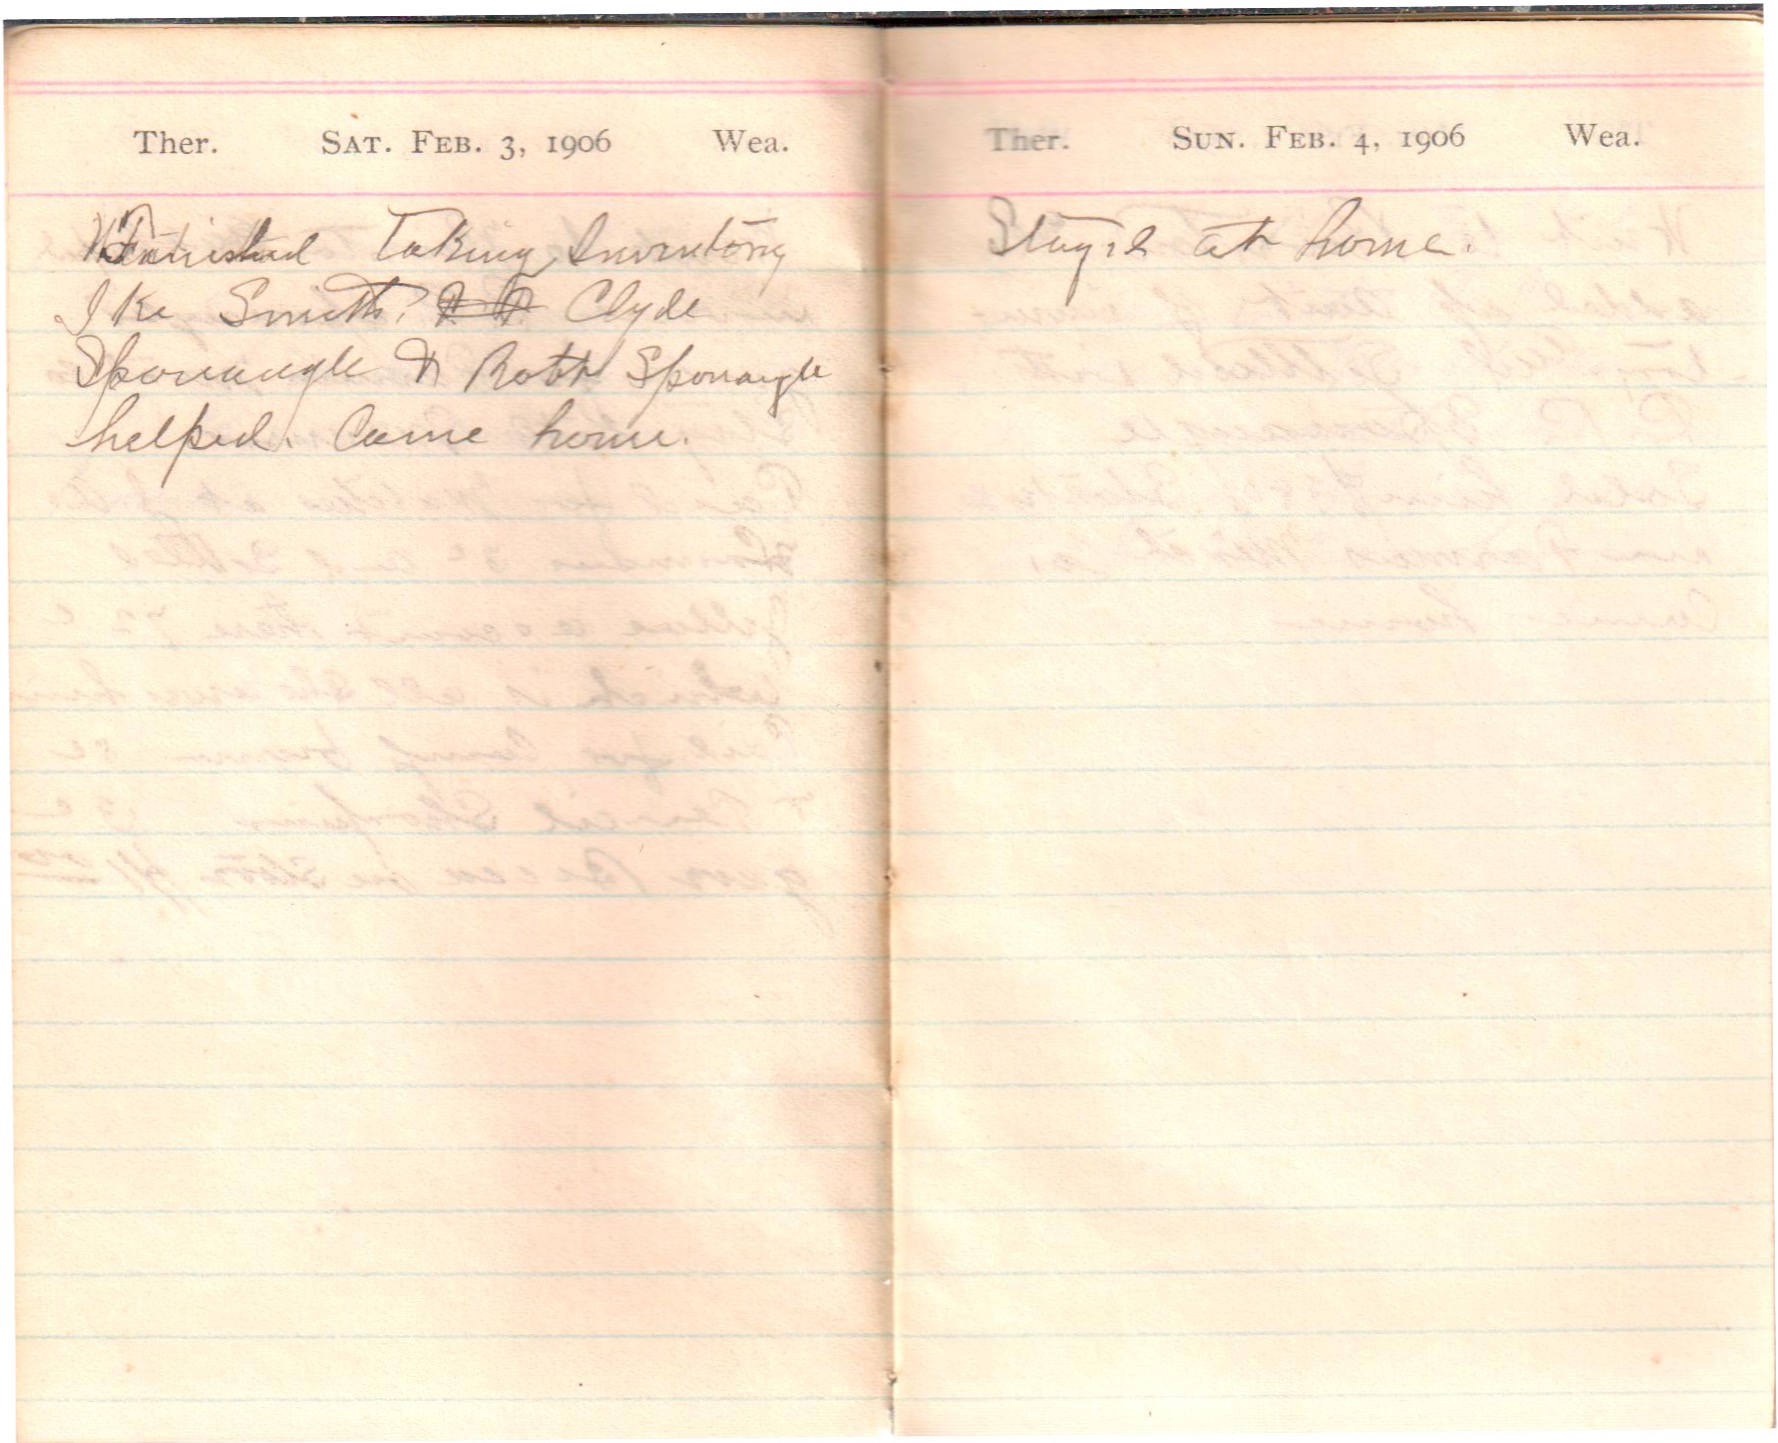 Ther. Sat. Feb. 3, 1906 Wea.
Finished Taking Inventory
Ike Smith, Clyde
Sponaugle & Robt Sponaugle
helped. Came home.
Ther. Sun. Feb. 4, 1906 Wea.
Stayed at home.